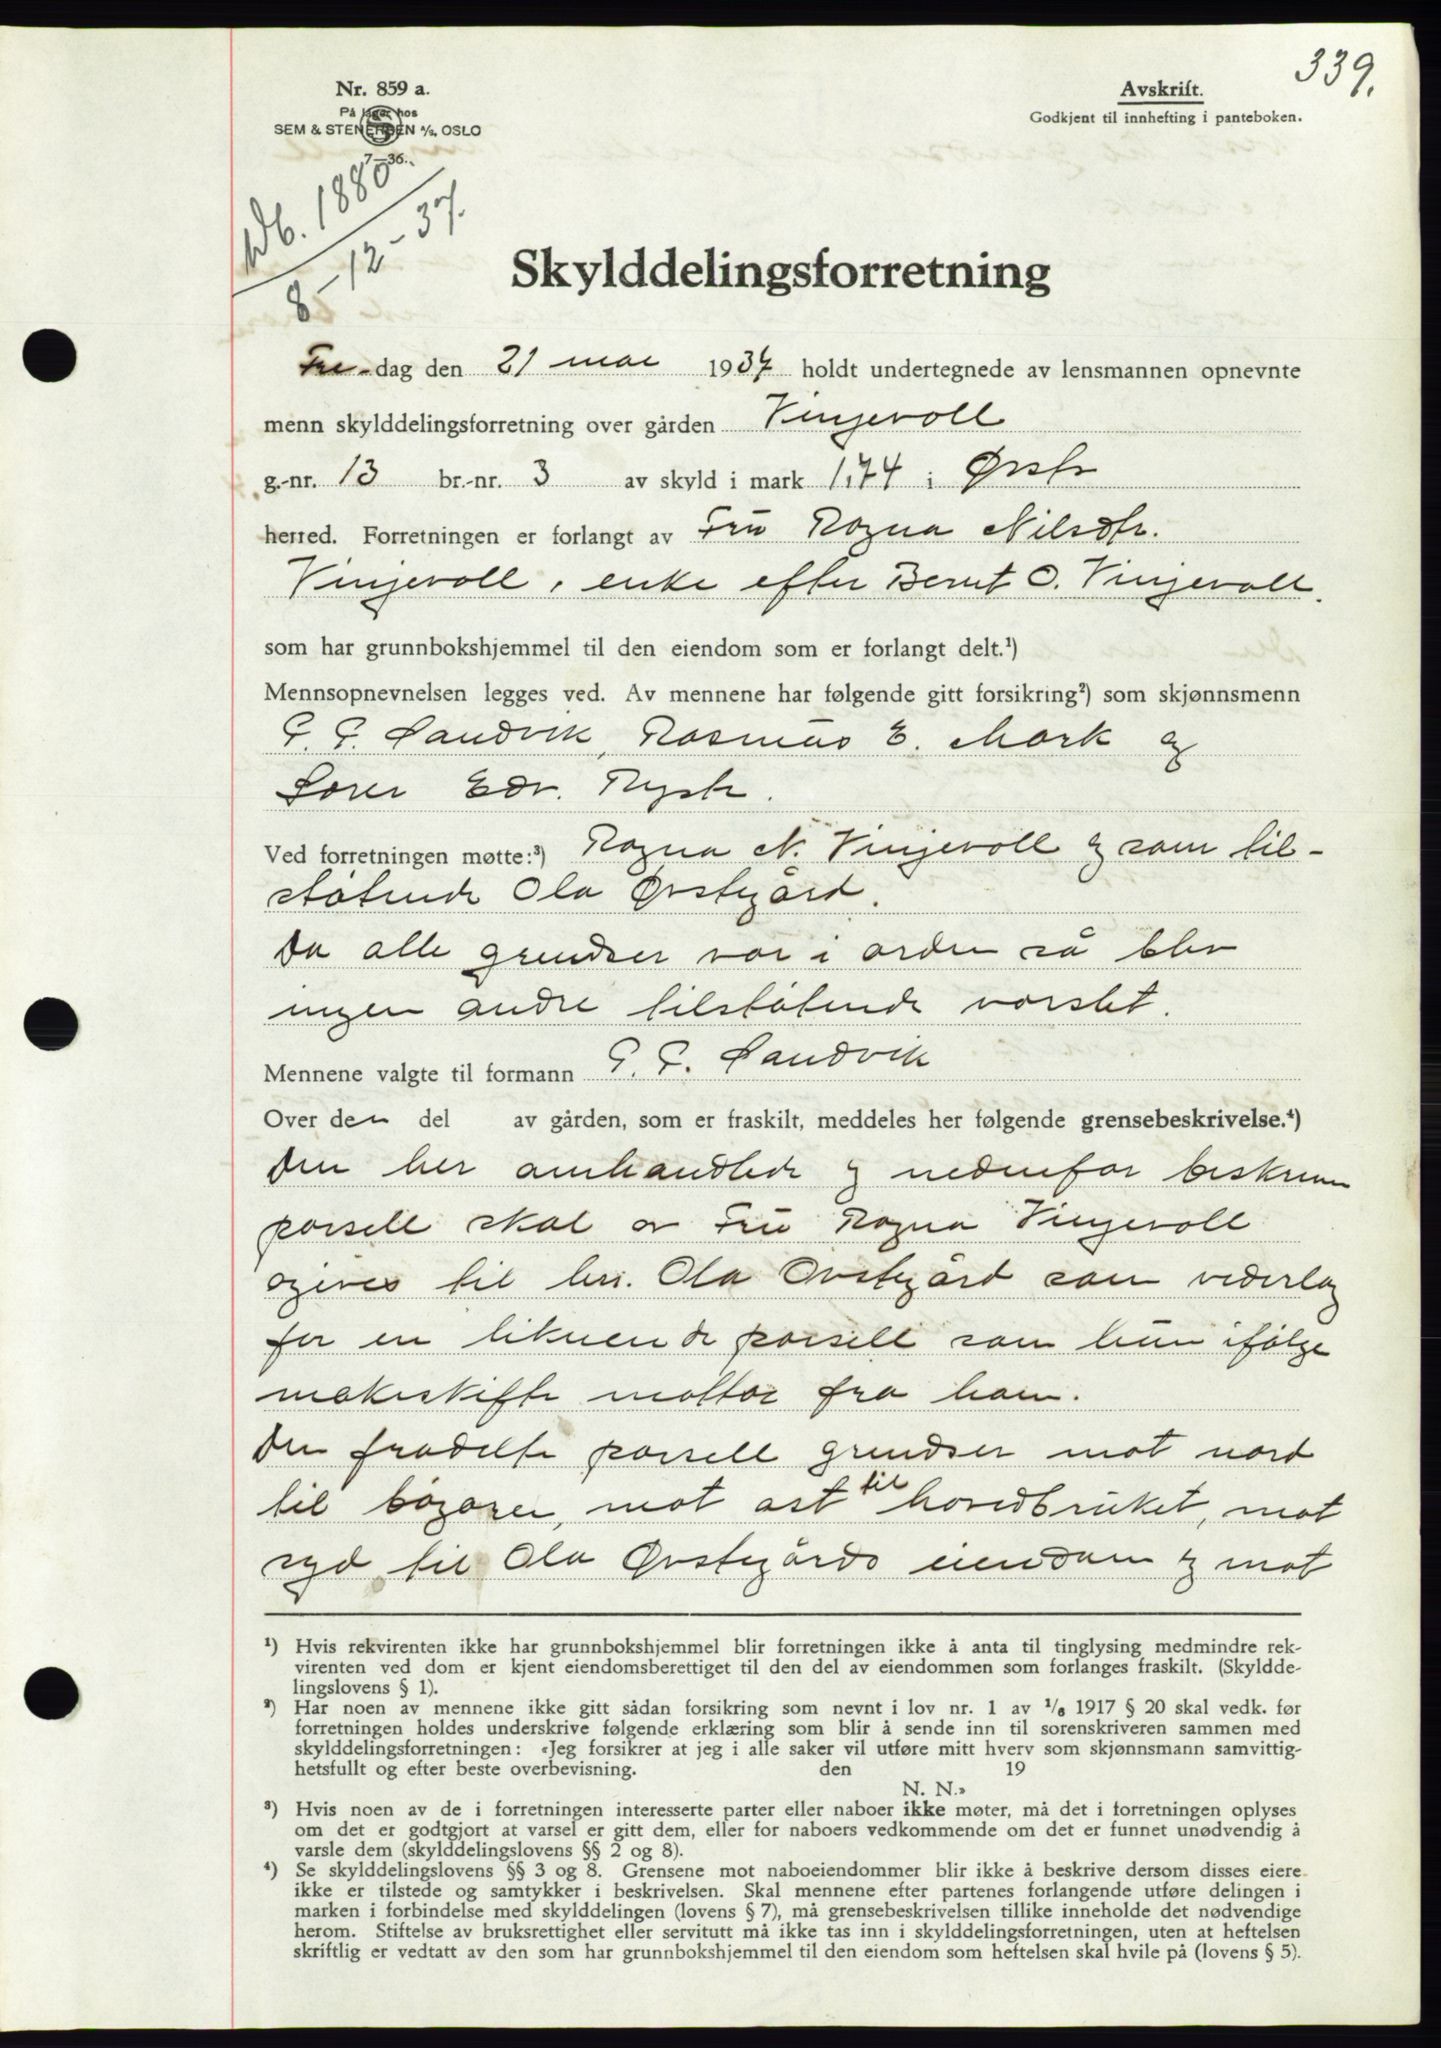 339.
Nr. 859 a.
På lager hos
SEM & STENERSEN A/S, OSLO
7—36.
Avskrift.
Godkjent til innhefting i panteboken.
Db. 1880.
8-12-37.
Skylddelingsforretning
Fre-dag den 21 mai 1937 holdt undertegnede av lensmannen opnevnte
menn skylddelingsforretning over gården Vinjevoll
g.-nr. 13 br.-nr. 3 av skyld i mark 1,74 i Ørsta
herred. Forretningen er forlangt av Frü Ragna Nilsdtr.
Vinjevoll, enke efter Bernt O. Vinjevoll.
som har grunnbokshjemmel til den eiendom som er forlangt delt.¹)
Mennsopnevnelsen legges ved. Av mennene har følgende gitt forsikring²) som skjønnsmenn
Sandvik, Rasmus E. Mork og
Edv. Rysta.
Ved forretningen møtte:³) Ragna N. Vinjevoll og som til-
støtende Ola Øvstegård.
Da alle grendser var i orden så blev
ingen andre tilstøtende varslet.
Mennene valgte til formann Sandvik
Over den del av gården, som er fraskilt, meddeles her følgende grensebeskrivelse.⁴)
Den her omhandlede og nedenfor beskrevne
parsell skal av Frü Ragna Vinjevoll
ogives til hr. Ola Øvstegård som vederlag
for en liknende parsell som hun ifølge
makeskifte mottar fra ham.
Den fradelte parsell grendser mot nord
til bøgaren, mot øst til hovedbruket, mot
syd til Ola Øvstegårds eiendom og mot
¹) Hvis rekvirenten ikke har grunnbokshjemmel blir forretningen ikke å anta til tinglysing medmindre rek-
virenten ved dom er kjent eiendomsberettiget til den del av eiendommen som forlanges fraskilt. (Skyldde-
lingslovens § 1).
²) Har noen av mennene ikke gitt sådan forsikring som nevnt i lov nr. 1 av 1/6 1917 § 20 skal vedk. før
forretningen holdes underskrive følgende erklæring som blir å sende inn til sorenskriveren sammen med
skylddelingsforretningen: «Jeg forsikrer at jeg i alle saker vil utføre mitt hverv som skjønnsmann samvittig-
hetsfullt og efter beste overbevisning. den 19
N. N.»
³) Hvis noen av de i forretningen interesserte parter eller naboer ikke møter, må det i forretningen oplyses
om det er godtgjort at varsel er gitt dem, eller for naboers vedkommende om det er funnet unødvendig å
varsle dem (skylddelingslovens §§ 2 og 8).
⁴) Se skylddelingslovens §§ 3 og 8. Grensene mot naboeiendommer blir ikke å beskrive dersom disses eiere
ikke er tilstede og samtykker i beskrivelsen. Skal mennene efter partenes forlangende utføre delingen i
marken i forbindelse med skylddelingen (lovens § 7), må grensebeskrivelsen tillike inneholde det nødvendige
herom. Stiftelse av bruksrettighet eller servitutt må ikke tas inn i skylddelingsforretningen, uten at heftelsen
skriftlig er vedtatt av den som har grunnbokshjemmel til den eiendom som heftelsen skal hvile på (lovens § 5).